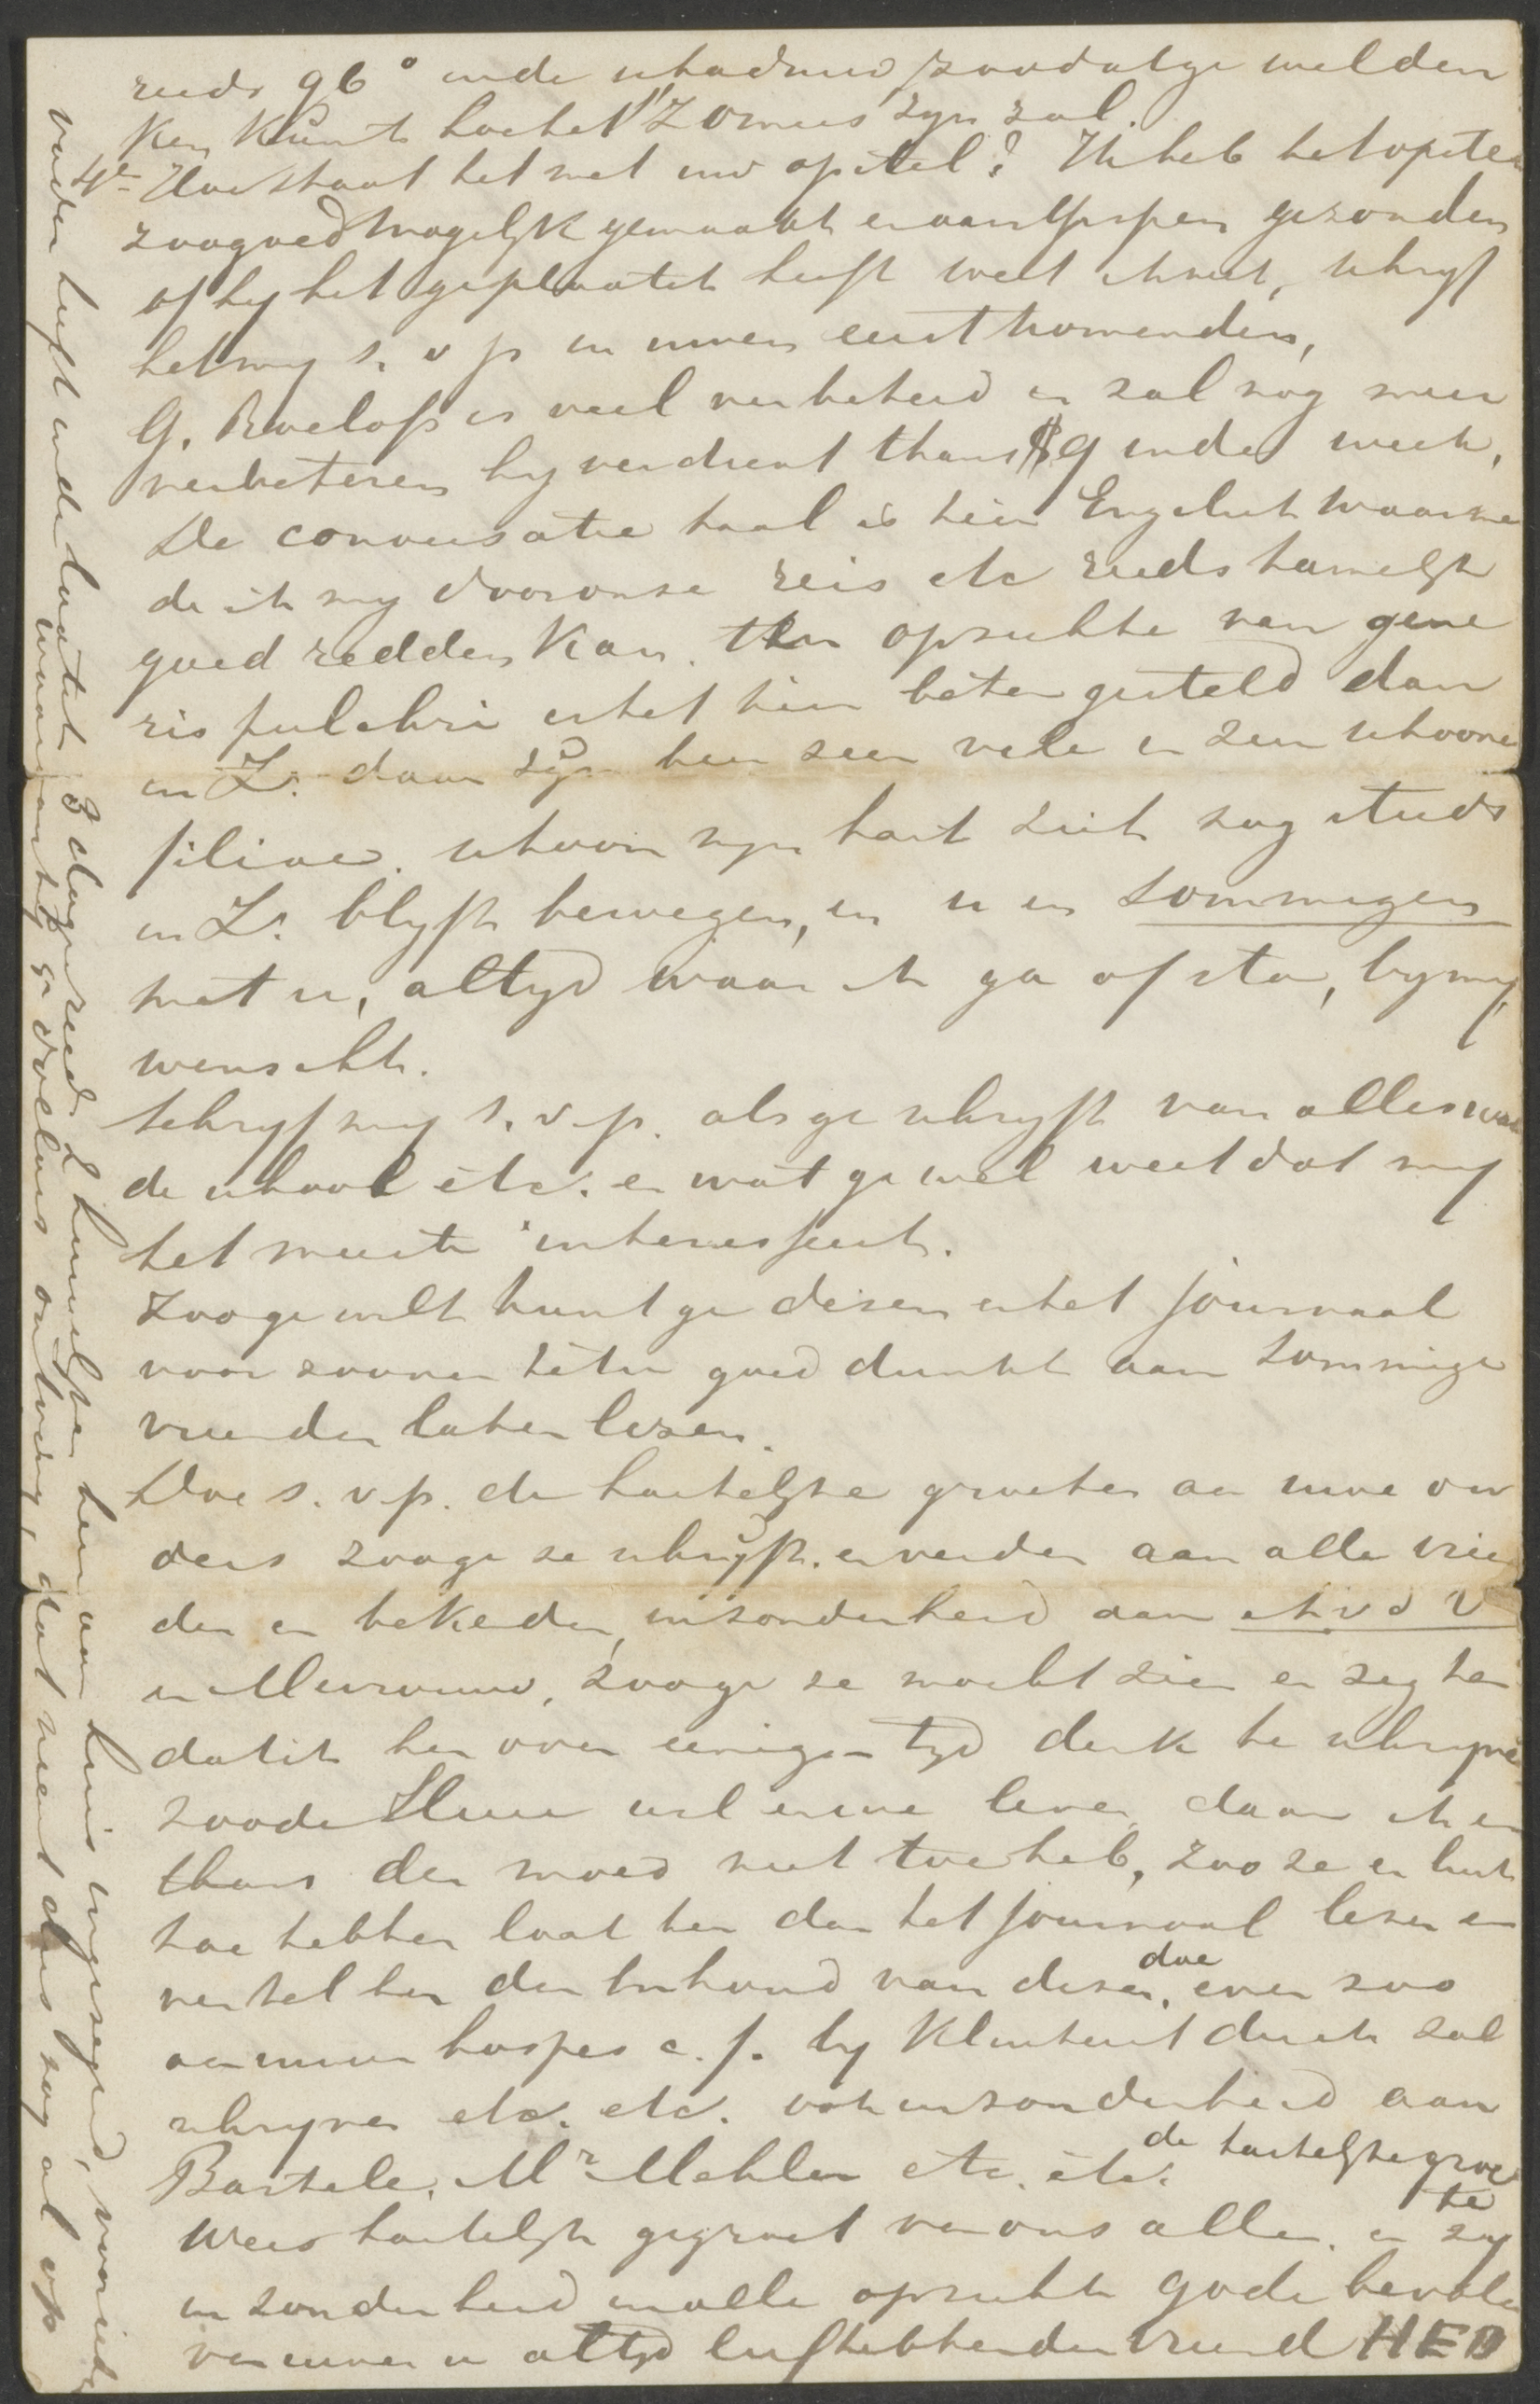 reeds 96° in de schaduw zoodat ge melden
ken kunt hoe het 's zomers zyn zal.
4e Hoe staat het met uw opstel? Ik heb het opstel
zoogoed mogelyk gemaakt en aan gezonden
of hy het geplaatst heeft weet ik niet, schryf
het my s. v p in uwen eerstkomenden,
G. Roelofs is veel verbeterd en zal nog meer
verbeteren hy verdient thans $9 in de week,
De conversatie taal is hier Engelsch waarme
de ik my door onze reis etc reeds tamelyk
goed redden kan. Ten opzichte van gene
ris pulchri is het hier beter gesteld dan
in Z. daar zyn hier zeer vele en zeer schoone
filiae. schoon myn hart zich nog steeds
in Z. blyft bewegen, en u en sommigen
met u, altyd waar ik ga of sta, by my
wenscht.
Schryf my s. v. p. als ge schryft van alles van
de school etc. en wat ge wel weet dat my
het meeste interesseert.
Zoo ge wilt kunt ge dezen en het journaal
voor zoover het u goed dunkt aan sommige
vrienden laten lezen.
Doe s. v. p. de hartelyke groeten aan uwe ou
ders zoo ge ze schryft. en verder aan alle vrien
den en bekenden, inzonderheid aan
en Mevrouw, zoo ge ze mocht zien en zeg hen
dat ik hen over eenigen tyd denk te schryven
zoo de Heere wil en we leven, daar ik er
thans den moed niet toe heb, zoo ze er lust
toe hebben laat hen dan het journaal lezen en
vertel hen den inhoud van dezen, doe even zoo
aan uwen hospes c. f. by Klinkert dien ik zal
schryven etc. etc. ook inzonderheid aan
Bartels, Mr Mehler etc. etc. de hartelyke groe
te
Wees hartelyk gegroet van ons allen en zy
in zonderheid in alle opzichte gode bevolen
van uwen u altyd liefhebbenden vriend HED
vader heeft in de laatste 3 dagen reeds 2 huurders hier aan huis ingezegend, voor ieder
waarvan hy ge dollars ontving, dat neemt dus nog al op